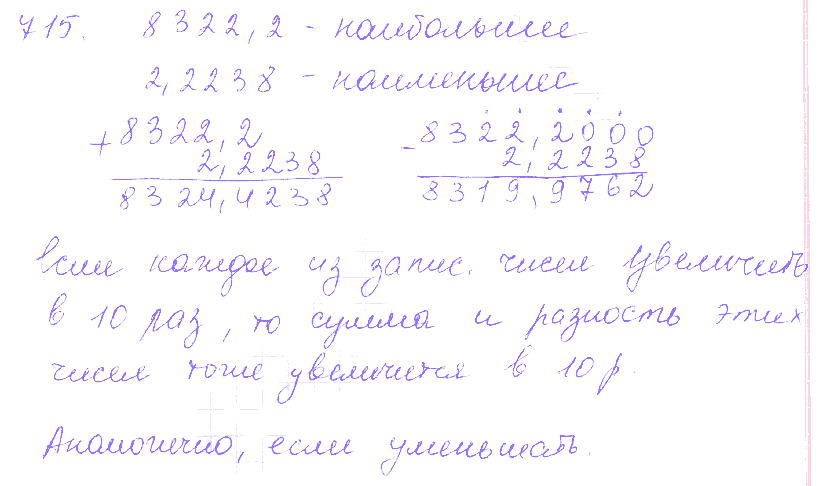 715. 8322,2 - наибольшее
2,2238 - наименьшее
+ 8322,2
2,2238
8324,4238
- 8322,2000
2,2238
8319,9762
Если каждое из запис. чисел увеличить
в 10 раз, то сумма и разность этих
чисел тоже увеличится в 10 р.
Аналогично, если уменьшать.